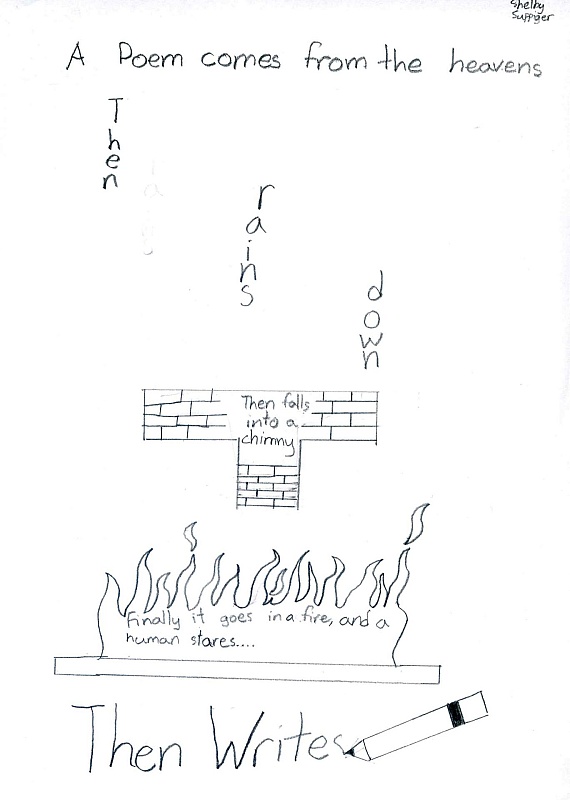 Shelby
Suppiger
A Poem comes from the heavens
Then
rains
down
Then falls
into a
chimny
Finally it goes in a fire, and a
human stares....
Then Writes